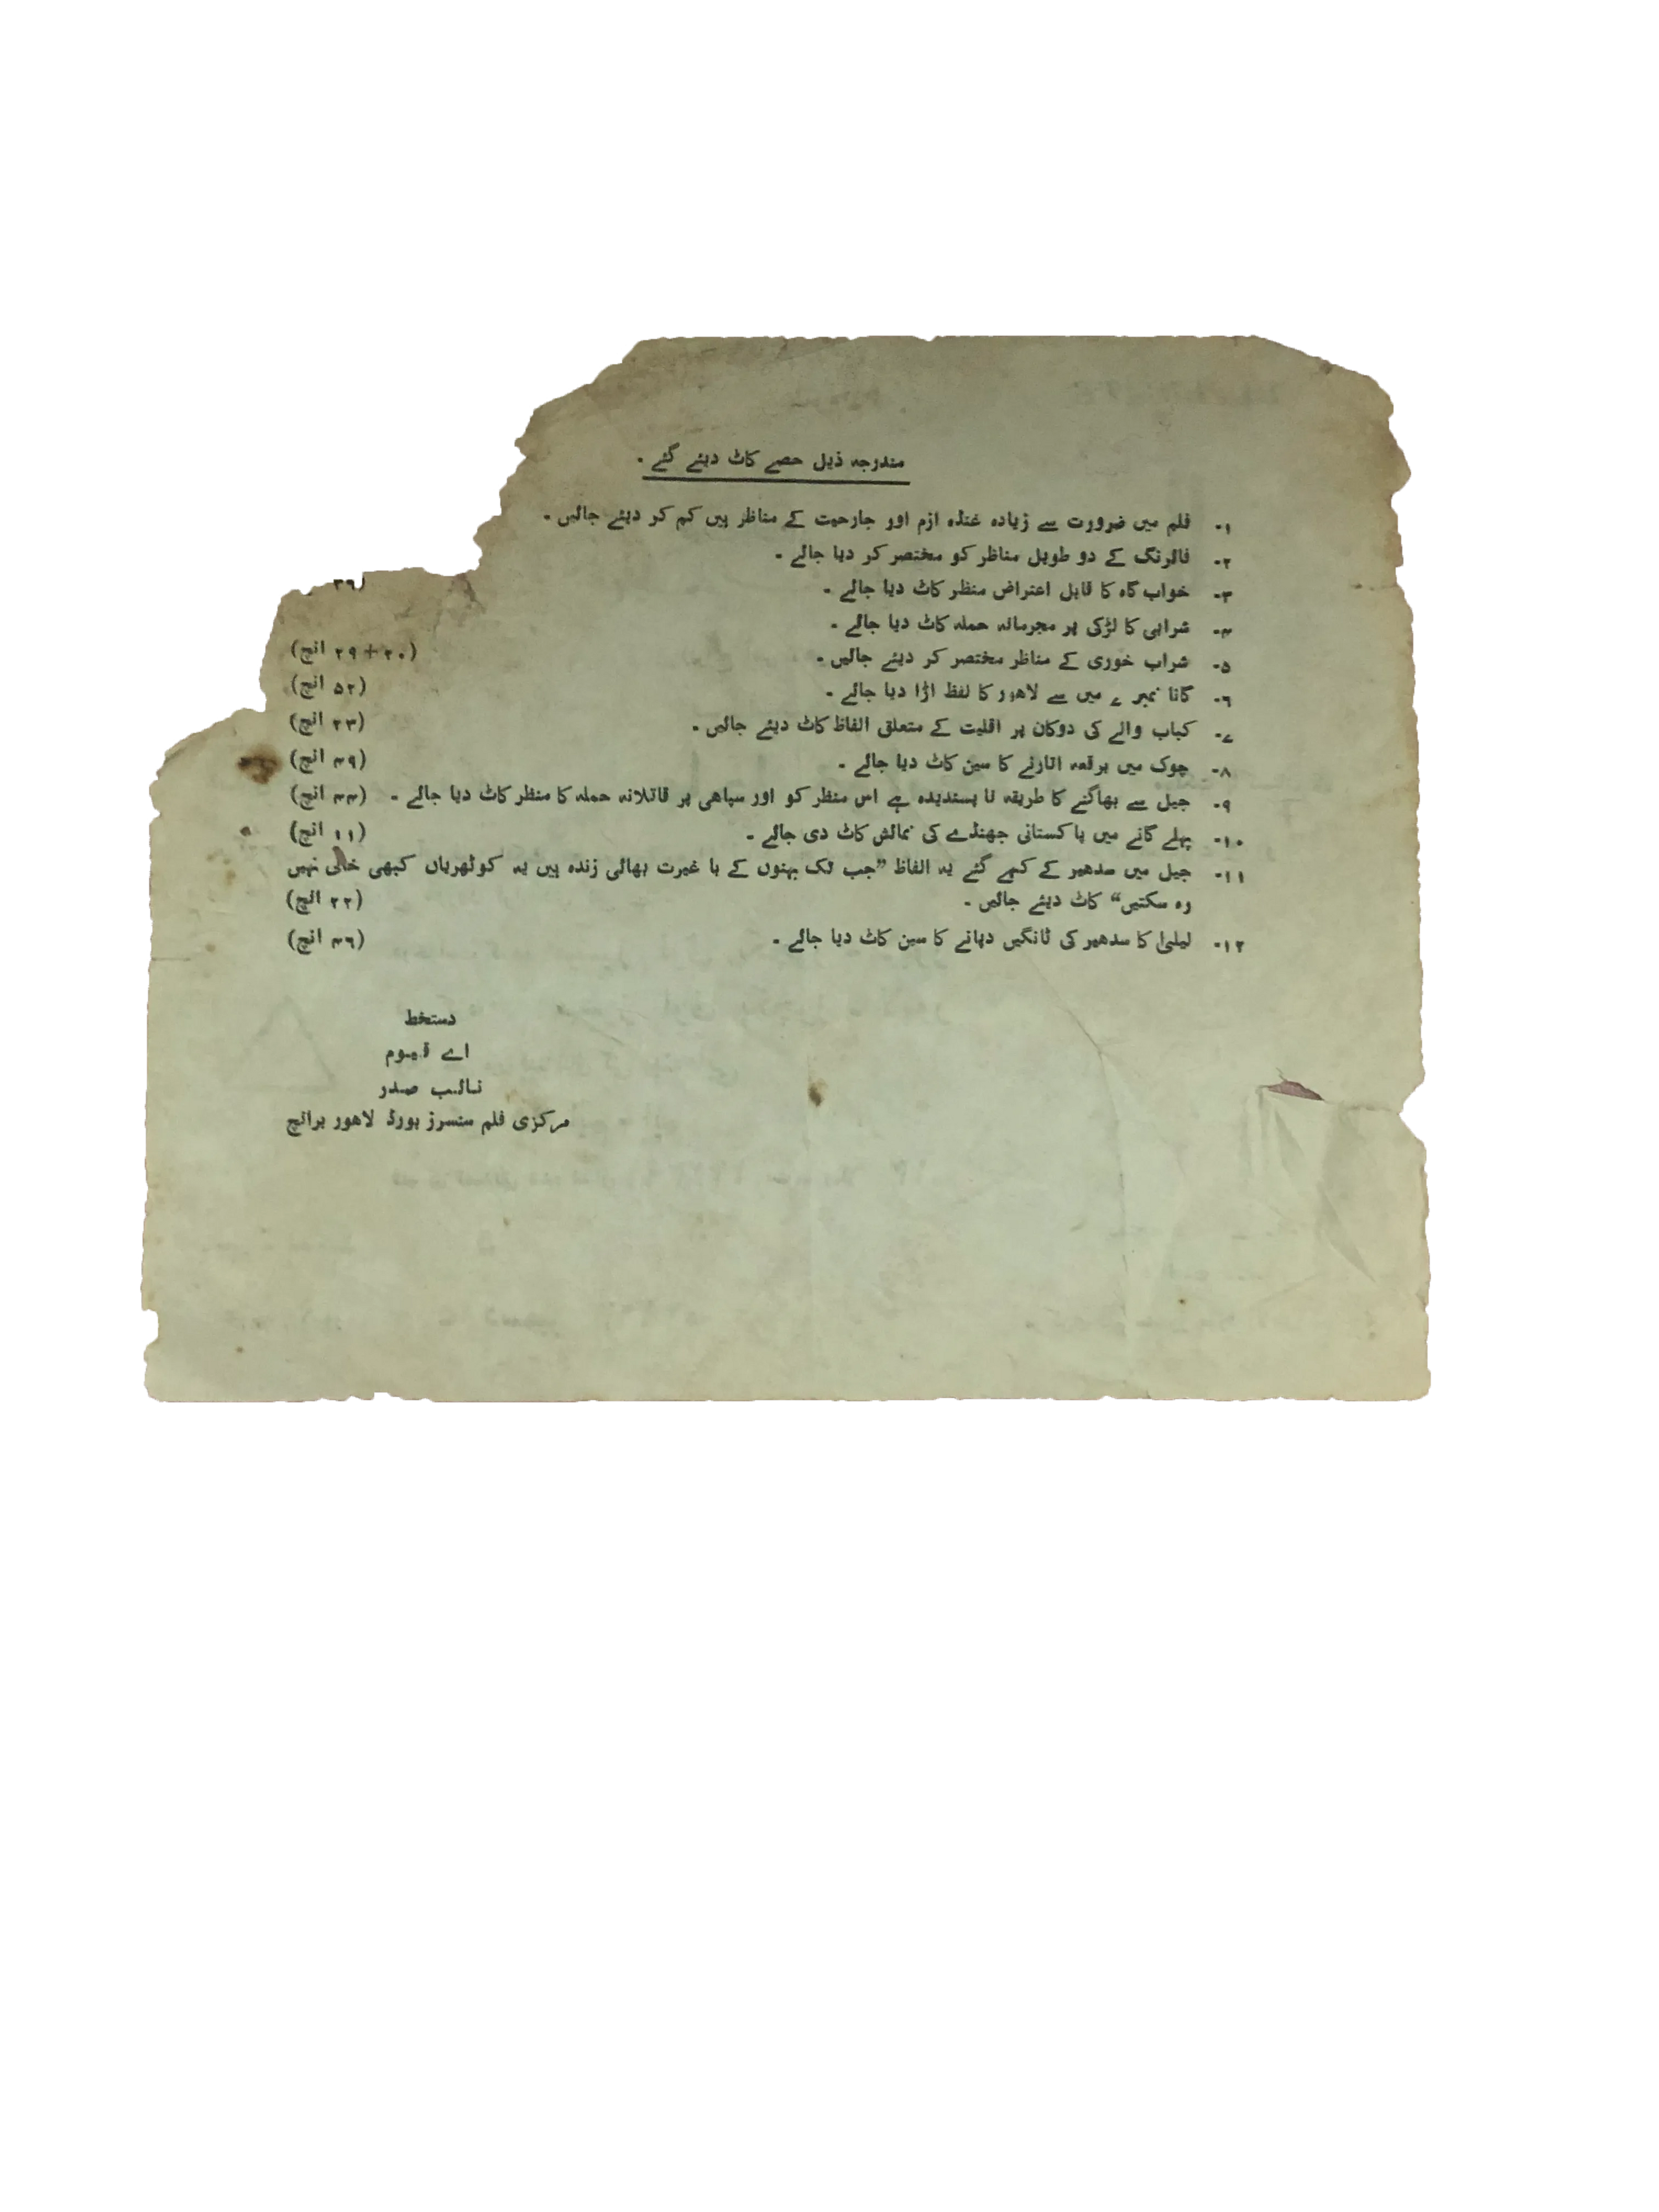 مندرجہ ذیل حصے کاٹ دیئے گئے ۔
۱۔ فلم میں ضرورت سے زیادہ غنڈہ ازم اور جارحیت کے مناظر ہیں کم کر دیئے جائیں ۔
۲۔ فائرنگ کے دو طویل مناظر کو مختصر کر دیا جائے ۔
۳۔ خواب گاہ کا قابل اعتراض منظر کاٹ دیا جائے ۔
۴۔ شرابی کا لڑکی پر مجرمانہ حملہ کاٹ دیا جائے ۔
۵۔ شراب خوری کے مناظر مختصر کر دیئے جائیں ۔ (۲۰+۲۹ انچ)
۶۔ گانا نمبر ۷ میں سے لاھور کا لفظ اڑا دیا جائے ۔ (۵۲ انچ)
۷۔ کباب والے کی دوکان پر اقلیت کے متعلق الفاظ کاٹ دیئے جائیں ۔ (۲۳ انچ)
۸۔ چوک میں برقعہ اتارنے کا سین کاٹ دیا جائے ۔ (۴۹ انچ)
۹۔ جیل سے بھاگنے کا طریقہ نا پسندیدہ ہے اس منظر کو اور سپاھی پر قاتلانہ حملہ کا منظر کاٹ دیا جائے ۔ (۴۴ انچ)
۱۰۔ پہلے گانے میں پاکستانی جھنڈے کی نمائش کاٹ دی جائے ۔ (۱۱ انچ)
۱۱۔ جیل میں سدھیر کے کہے گئے یہ الفاظ ”جب تک بہنوں کے با غیرت بھائی زندہ ہیں یہ کوٹھریاں کبھی خالی نہیں
رہ سکتیں“ کاٹ دیئے جائیں ۔ (۲۲ انچ)
۱۲۔ لیلیٰ کا سدھیر کی ٹانگیں دبانے کا سین کاٹ دیا جائے ۔ (۴۶ انچ)
دستخط
اے قیوم
نائب صدر
مرکزی فلم سنسرز بورڈ لاھور برانچ